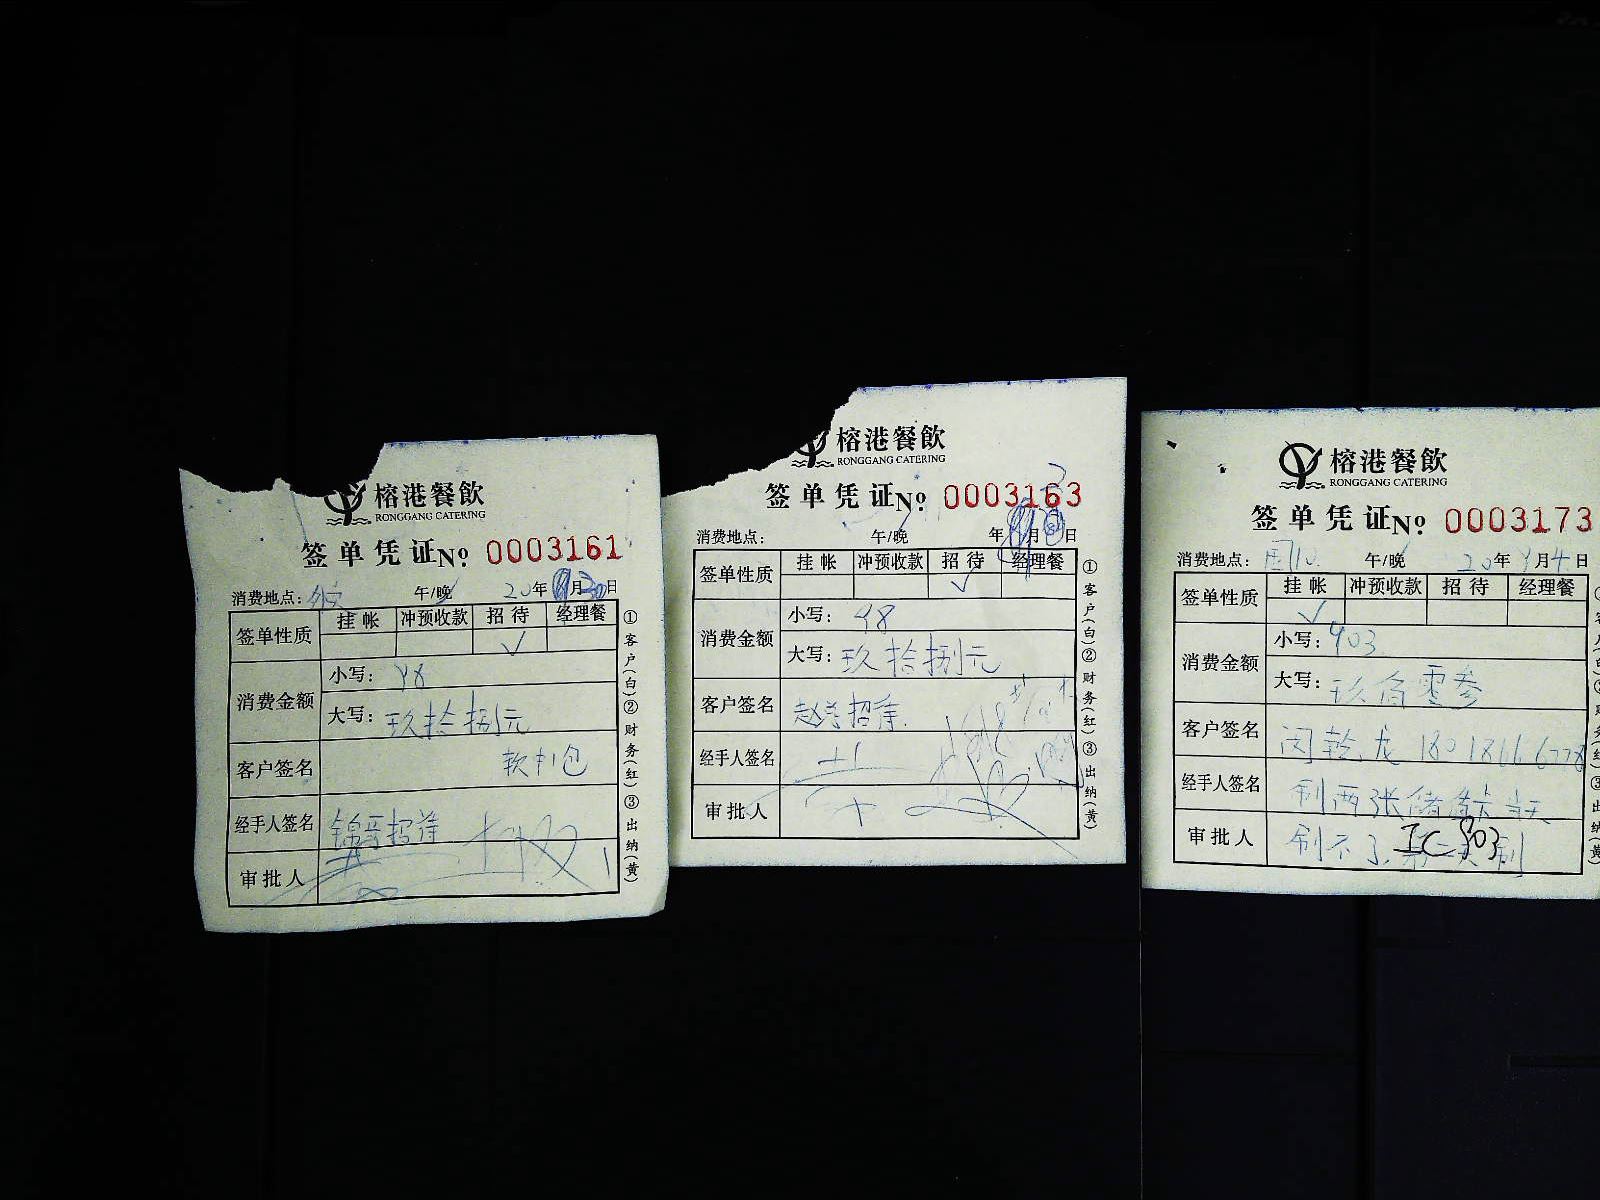 榕港餐飲
RONGGANG CATERING
签单凭证 № 0003161
消费地点: 午/晚 20年 月30日
签单性质 挂帐 冲预收款 招待 经理餐
✓
消费金额 小写: 98
大写: 玖拾捌元
客户签名 软打包
经手人签名 锦哥招待
审批人
①客户(白)②财务(红)③出纳(黄)
榕港餐飲
RONGGANG CATERING
签单凭证 № 0003163
消费地点: 午/晚 年 月 日
签单性质 挂帐 冲预收款 招待 经理餐
✓
消费金额 小写: 98
大写: 玖拾捌元
客户签名 赵总招待
经手人签名
审批人
①客户(白)②财务(红)③出纳(黄)
榕港餐飲
RONGGANG CATERING
签单凭证 № 0003173
消费地点: 午/晚 20年9月4日
签单性质 挂帐 冲预收款 招待 经理餐
✓
消费金额 小写: 903
大写: 玖佰零叁
客户签名 闵乾龙
经手人签名 刷两张
审批人 刷不了 IC 903